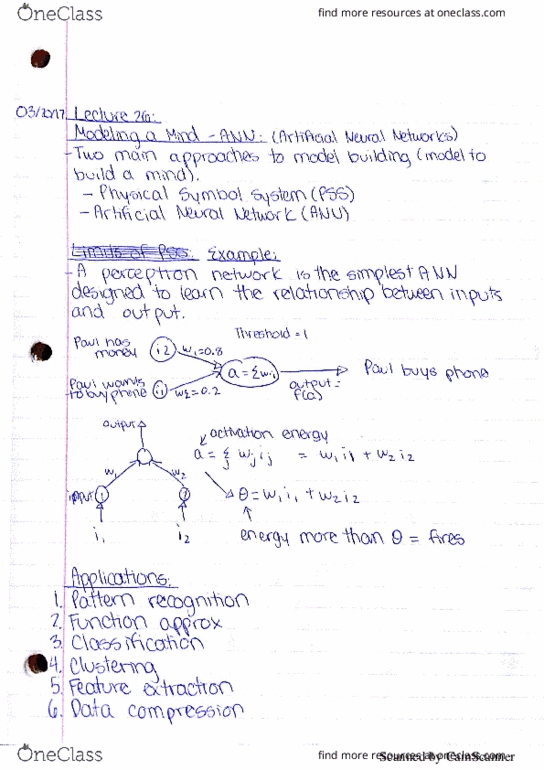 OneClass
find more resources at oneclass.com
03/20/17 Lecture 26:
Modeling a Mind - ANN: (Artificial Neural Networks)
- Two main approaches to model building (model to
build a mind).
- Physical Symbol System (PSS)
- Artificial Neural Network (ANN)
Limits of PSS: Example:
- A perceptron network is the simplest ANN
designed to learn the relationship between inputs
and output.
Threshold = 1
Paul has
money
i2
w1=0.8
a = Σwi
Paul buys phone
output =
f(a)
Paul wants
to buy phone
w2=0.2
output
activation energy
a = Σ wj ij = w1 i1 + w2 i2
j
w1
w2
input
θ = w1 i1 + w2 i2
i1
i2
energy more than θ = fires
Applications:
1. Pattern recognition
2. Function approx
3. Classification
4. Clustering
5. Feature extraction
6. Data compression
OneClass
find more resources at oneclass.com
Scanned by CamScanner